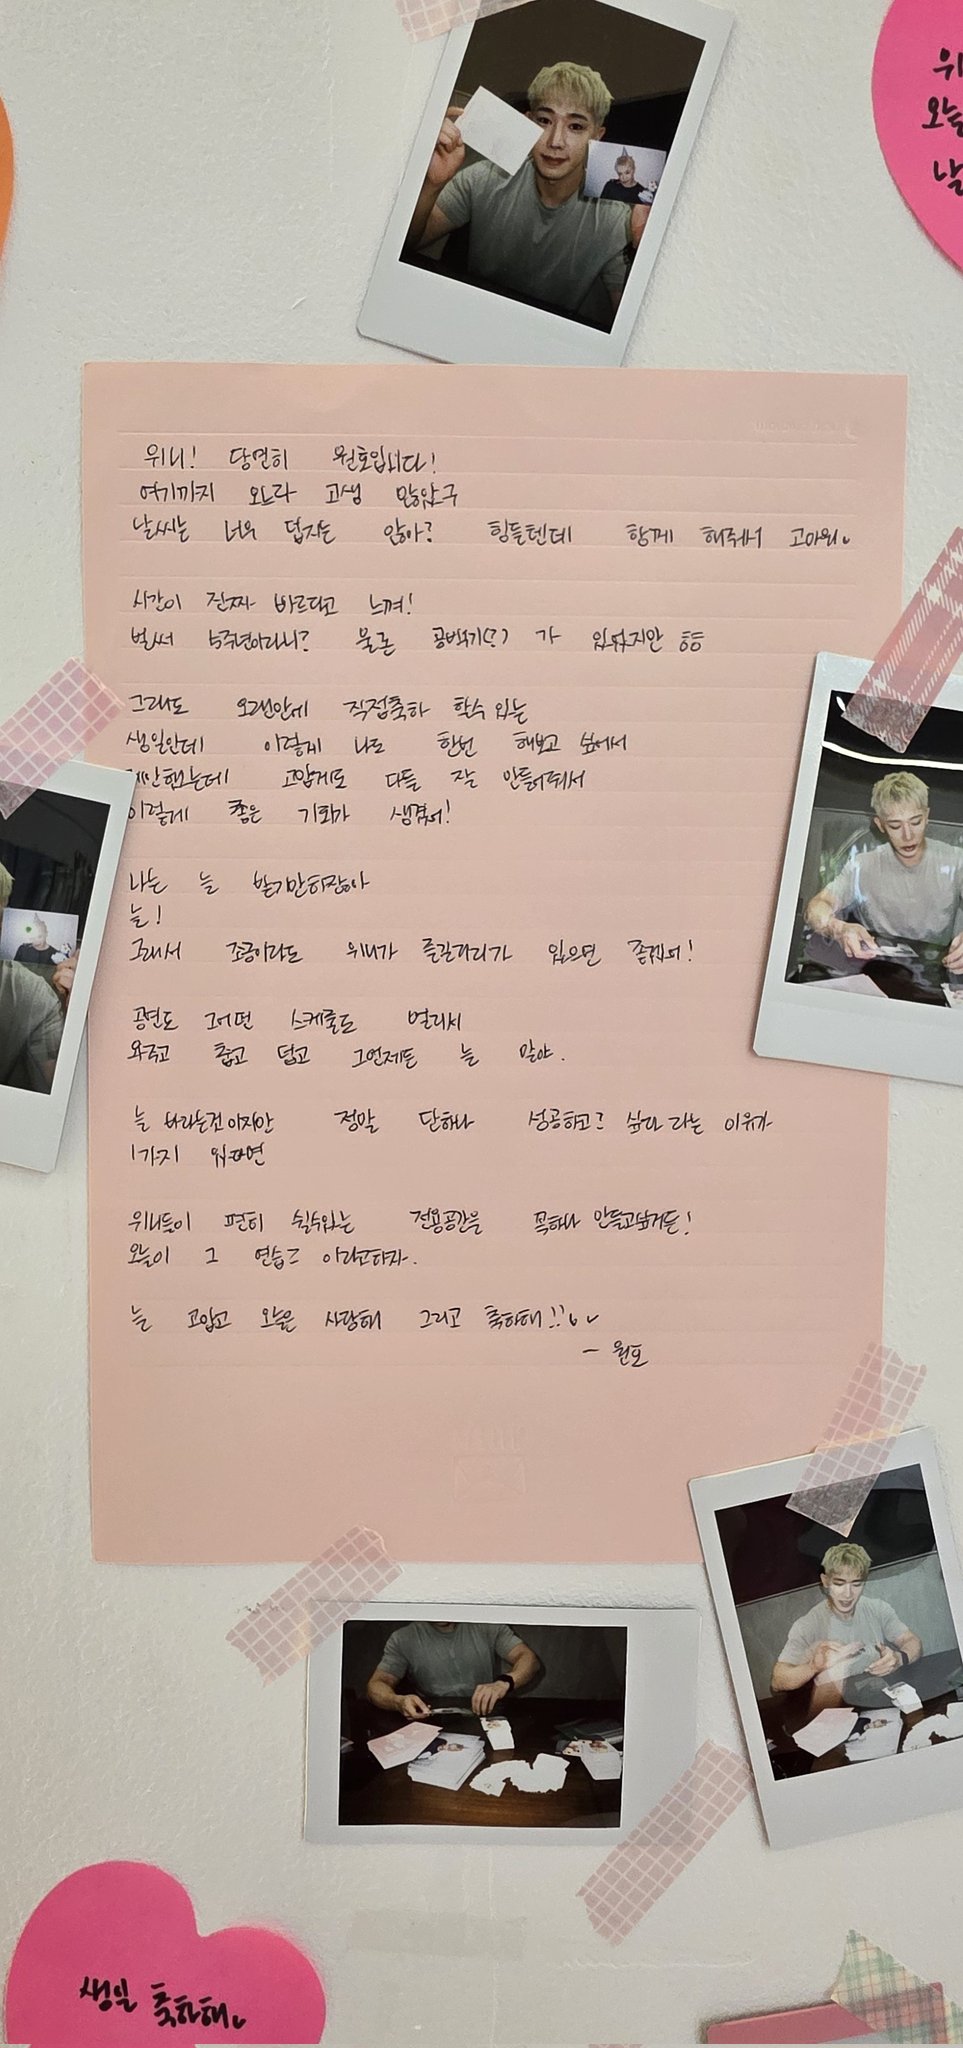 위
오늘
날
위니! 당연히 원호입니다!
여기까지 오느라 고생 많았구
날씨는 너무 덥지는 않아? 힘들텐데 함께 해줘서 고마워
시간이 진짜 빠르다고 느껴!
벌써 5주년이라니? 물론 공백기(?)가 있었지만 ㅎㅎ
그래도 오랜만에 직접축하 할수있는
생일인데 이렇게 나도 한번 해보고 싶어서
제안했는데 고맙게도 다들 잘 만들어줘서
이렇게 좋은 기회가 생겼어!
나는 늘 받기만하잖아
늘!
그래서 조금이라도 위니가 즐길거리가 있으면 좋겠어!
공연도 그어떤 스케줄도 멀리서
와주고 춥고 덥고 그언제든 늘 말야.
늘 바라는건이지만 정말 단하나 성공하고 싶다 라는 이유가
1가지 있다면
위니들이 편히 쉴수있는 전용공간을 꼭하나 만들고싶거든!
오늘이 그 연습 이라고하자.
늘 고맙고 오늘은 사랑해 그리고 축하해!!
- 원호
생일 축하해